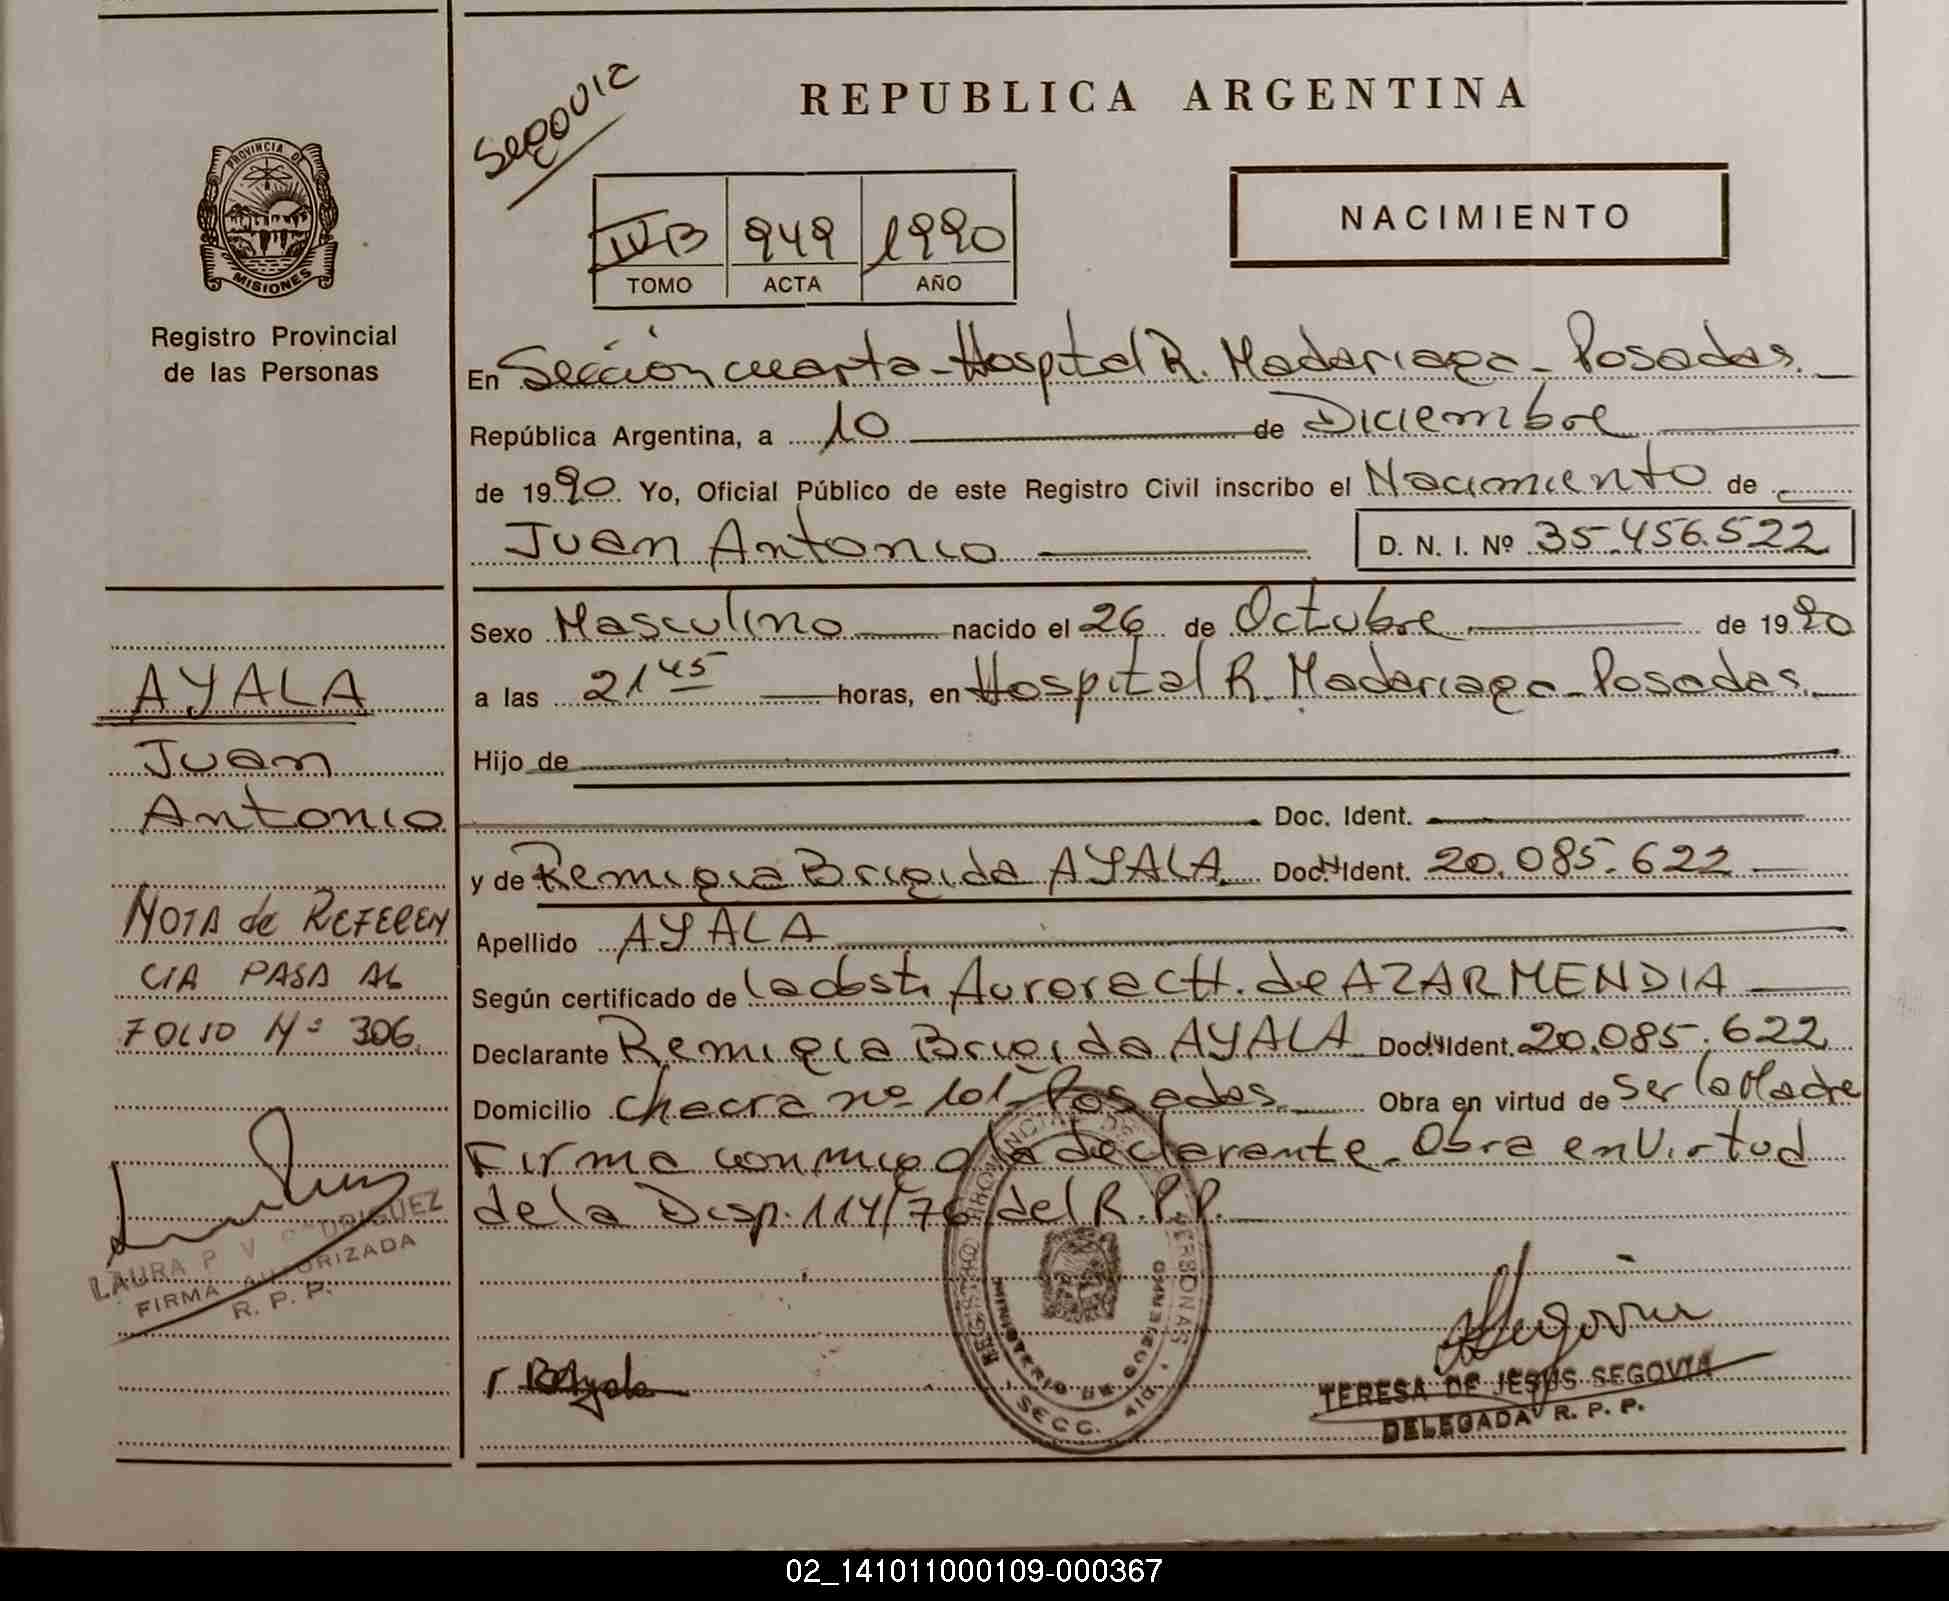 REPUBLICA ARGENTINA
Segovia
PROVINCIA DE
MISIONES
Registro Provincial
de las Personas
IV B 949 1990
TOMO ACTA AÑO
NACIMIENTO
En Sección cuarta - Hospital R. Madariaga - Posadas.
República Argentina, a 10 de Diciembre
de 1990 Yo, Oficial Público de este Registro Civil inscribo el Nacimiento de
Juan Antonio D. N. I. Nº 35.456.522
Sexo Masculino nacido el 26 de Octubre de 1990
a las 21 45 horas, en Hospital R. Madariaga - Posadas.
Hijo de
Doc. Ident.
y de Remigia Brigida AYALA Doc. Ident. 20.085.622
Apellido AYALA
Según certificado de la obst. Aurora CH. de AZARMENDIA
Declarante Remigia Brigida AYALA Doc. Ident. 20.085.622
Domicilio Chacra nº 101 - Posadas Obra en virtud de ser la Madre
Firma conmigo la declarante - Obra en Virtud
de la Disp. 114/76 del R.P.P.
AYALA
Juan
Antonio
NOTA de REFEREN
CIA PASA AL
FOLIO Nº 306
LAURA P. V. RODRIGUEZ
FIRMA AUTORIZADA
R. P. P.
R B Ayala
MINISTERIO DE GOBIERNO
SECC. 4ta.
Segovia
TERESA DE JESUS SEGOVIA
DELEGADA R. P. P.
02_141011000109-000367